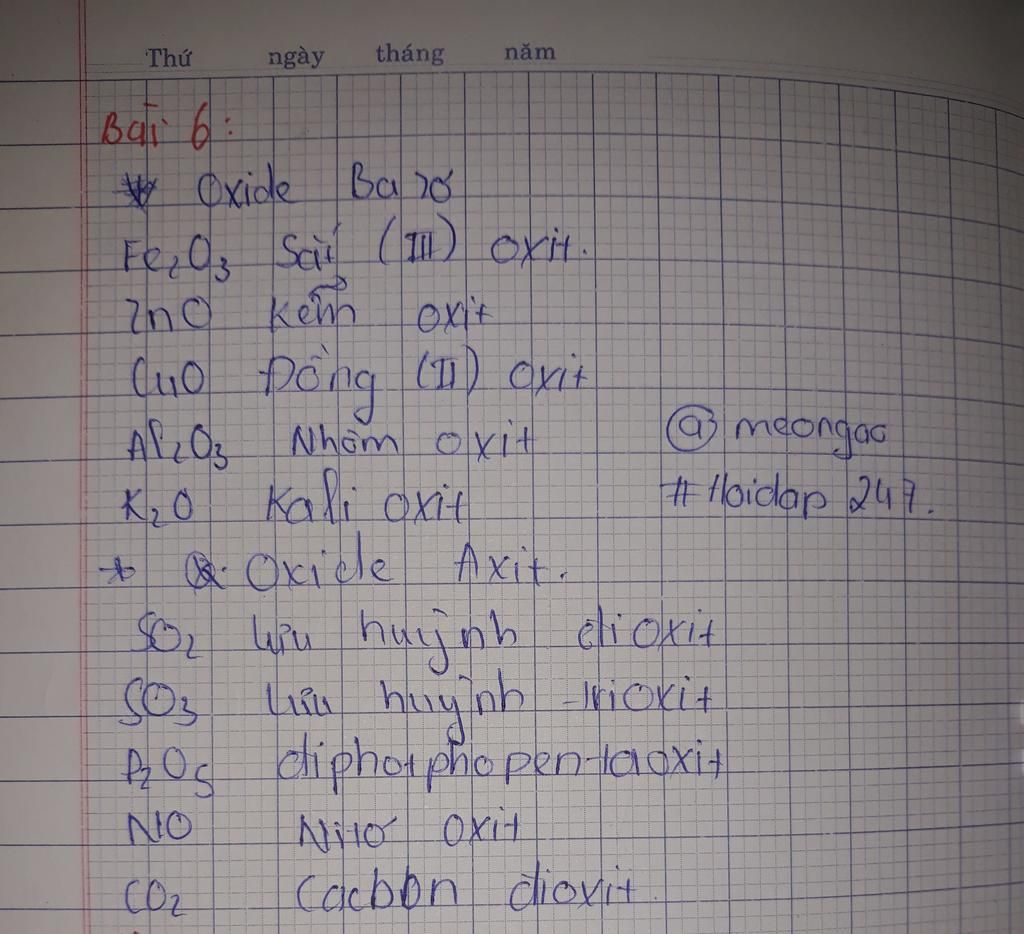 Thứ ngày tháng năm
Bài 6:
* Oxide Bazơ
Fe₂O₃ Sắt (III) oxit.
ZnO Kẽm oxit
CuO Đồng (II) oxit
Al₂O₃ Nhôm oxit
@meongao
K₂O Kali oxit
#Hoidap 247.
* Oxide Axit.
SO₂ lưu huỳnh đioxit
SO₃ lưu huỳnh trioxit
P₂O₅ điphotpho pentaoxit
NO Nitơ oxit
CO₂ Cacbon đioxit.